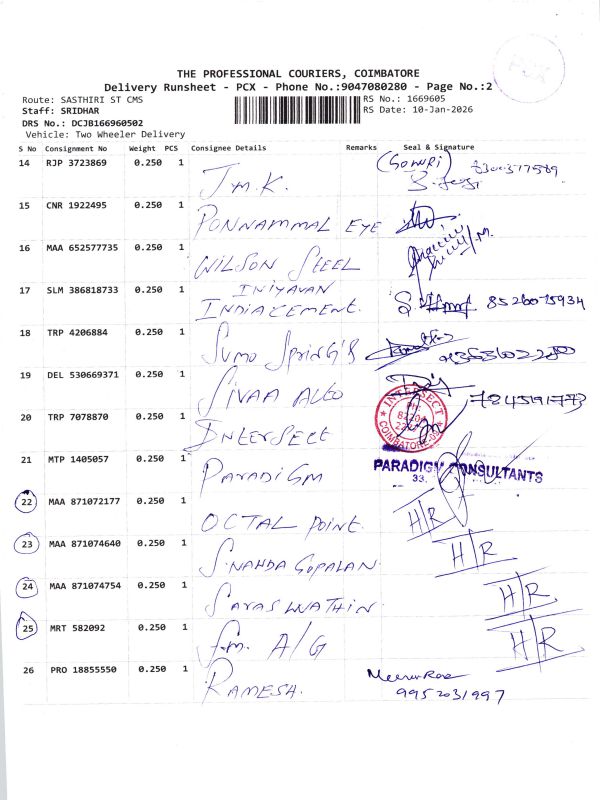 PCX
THE PROFESSIONAL COURIERS, COIMBATORE
Delivery Runsheet - PCX - Phone No.:9047080280 - Page No.:2
Route: SASTHIRI ST CMS
RS No.: 1669605
Staff: SRIDHAR
RS Date: 10-Jan-2026
DRS No.: DCJB166960502
Vehicle: Two Wheeler Delivery
S No Consignment No Weight PCS Consignee Details Remarks Seal & Signature
14 RJP 3723869 0.250 1 J.M.K. (Gowri)
15 CNR 1922495 0.250 1 PONNAMMAL EYE
16 MAA 652577735 0.250 1 WILSON STEEL
17 SLM 386818733 0.250 1 INIYAVAN
INDIACEMENT. 8526075934
18 TRP 4206884 0.250 1 SUMO SPRING'S
19 DEL 530669371 0.250 1 SIVAA AUTO
20 TRP 7078870 0.250 1 INTERSECT INTERSECT COIMBATORE
21 MTP 1405057 0.250 1 PARADIGM PARADIGM CONSULTANTS
33,
22 MAA 871072177 0.250 1 OCTAL POINT. H/R
23 MAA 871074640 0.250 1 GOPALAN. H/R
24 MAA 871074754 0.250 1 H/R
25 MRT 582092 0.250 1 A/G H/R
26 PRO 18855550 0.250 1 RAMESH.
9952031997